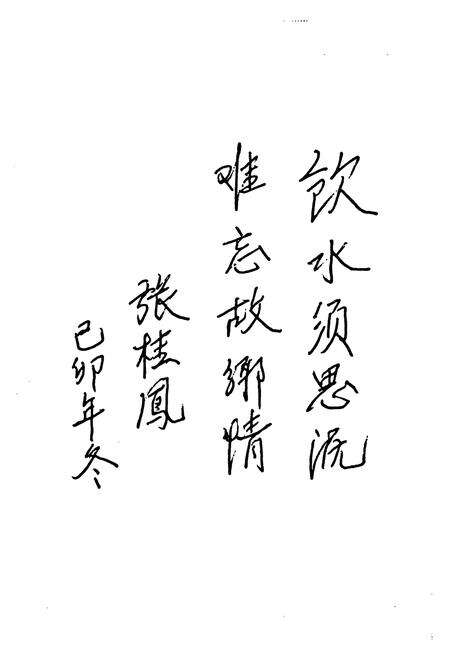 饮水须思源
难忘故鄉情
張桂鳳
己卯年冬